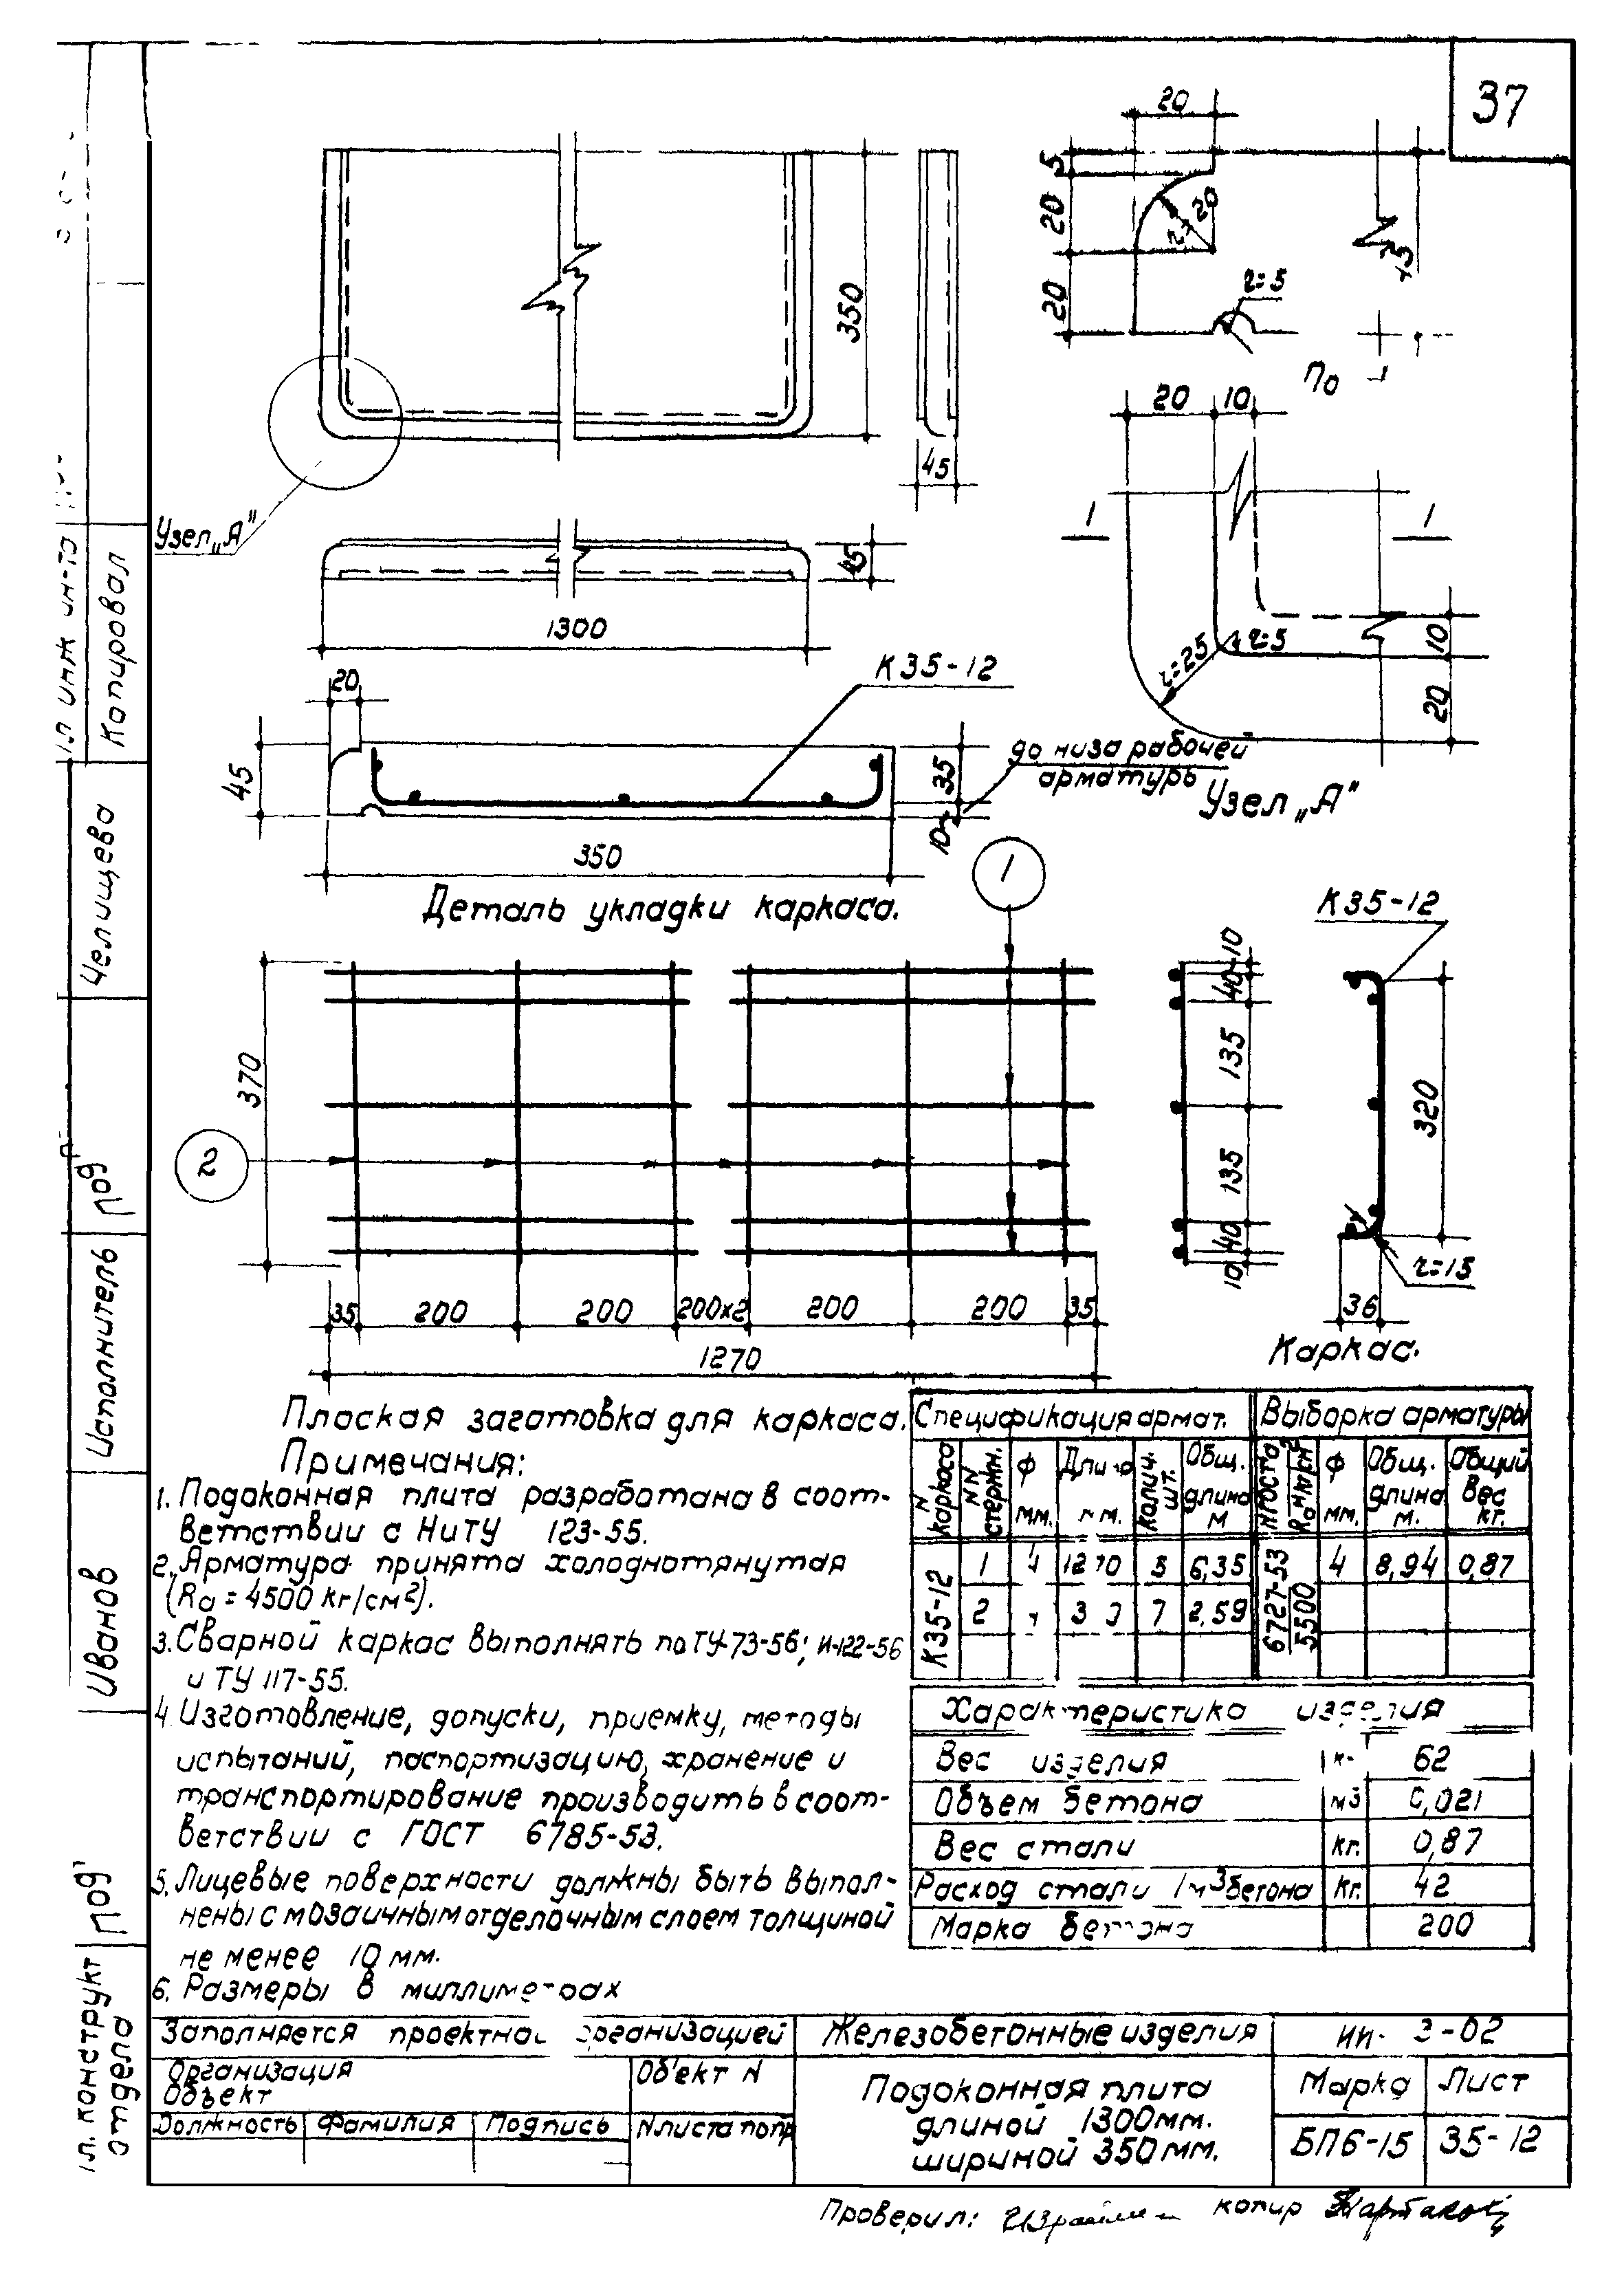 37
20
5
20
20
r=20
r=5
45
350
45
По 1-1
Узел „А"
45
1300
20 10
1 1
r=25
r=5
10
20
Узел „А"
К35-12
20
45
35
10
до низа рабочей
арматуры
350
Деталь укладки каркаса.
1
2
370
35 200 200 200х2 200 200 35
1270
10
40
135
135
40
10
К35-12
320
r=15
36
Каркас.
Плоская заготовка для каркаса.
Примечания:
1. Подоконная плита разработана в соот-
ветствии с НиТУ 123-55.
2. Арматура принята холоднотянутая
(Rа = 4500 кг/см²).
3. Сварной каркас выполнять по ТУ-73-56; И-122-56
и ТУ 117-55.
4. Изготовление, допуски, приемку, методы
испытаний, паспортизацию, хранение и
транспортирование производить в соот-
ветствии с ГОСТ 6785-53.
5. Лицевые поверхности должны быть выпол-
нены с мозаичным отделочным слоем толщиной
не менее 10 мм.
6. Размеры в миллиметрах
Спецификация армат. Выборка арматуры
N каркаса NN стержн. Ф мм. Длина мм. Колич. шт. Общ. длина м N госта Rа кг/см² Ф мм. Общ. длина м. Общий вес кг.
К35-12 1 4 1270 5 6,35 6727-53 5500 4 8,94 0,87
2 370 7 2,59
Характеристика изделия
Вес изделия 62
Объем бетона м3 0,021
Вес стали кг. 0,87
Расход стали 1м3 бетона кг. 42
Марка бетона 200
Заполняется проектной организацией
Организация
Объект
Об'ект N
Должность Фамилия Подпись N листа попр
Железобетонные изделия
Подоконная плита
длиной 1300мм.
шириной 350мм.
ИИ- 3-02
Марка Лист
БП6-15 35-12
Проверил: копир
Гл инж ин-та
Копировал
Челищева
Исполнитель
Под
Иванов
Под
Гл. конструкт
отдела